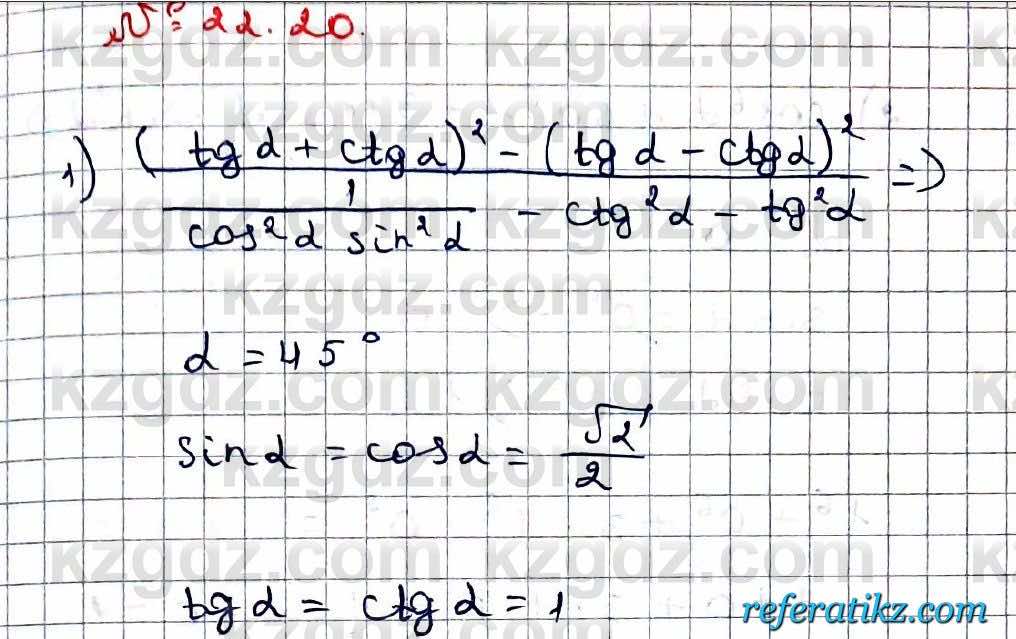 № 22.20.
kzgdz.com kzgdz.com
kzgdz.com
1) ((tg α + ctg α)² - (tg α - ctg α)²) / (1 / (cos² α sin² α) - ctg² α - tg² α) =>
kzgdz.com kzgdz.com
kzgdz.com
α = 45°
kzgdz.com kzgdz.com
sin α = cos α = √2 / 2
kzgdz.com
kzgdz.com kzgdz.com
tg α = ctg α = 1
referatikz.com